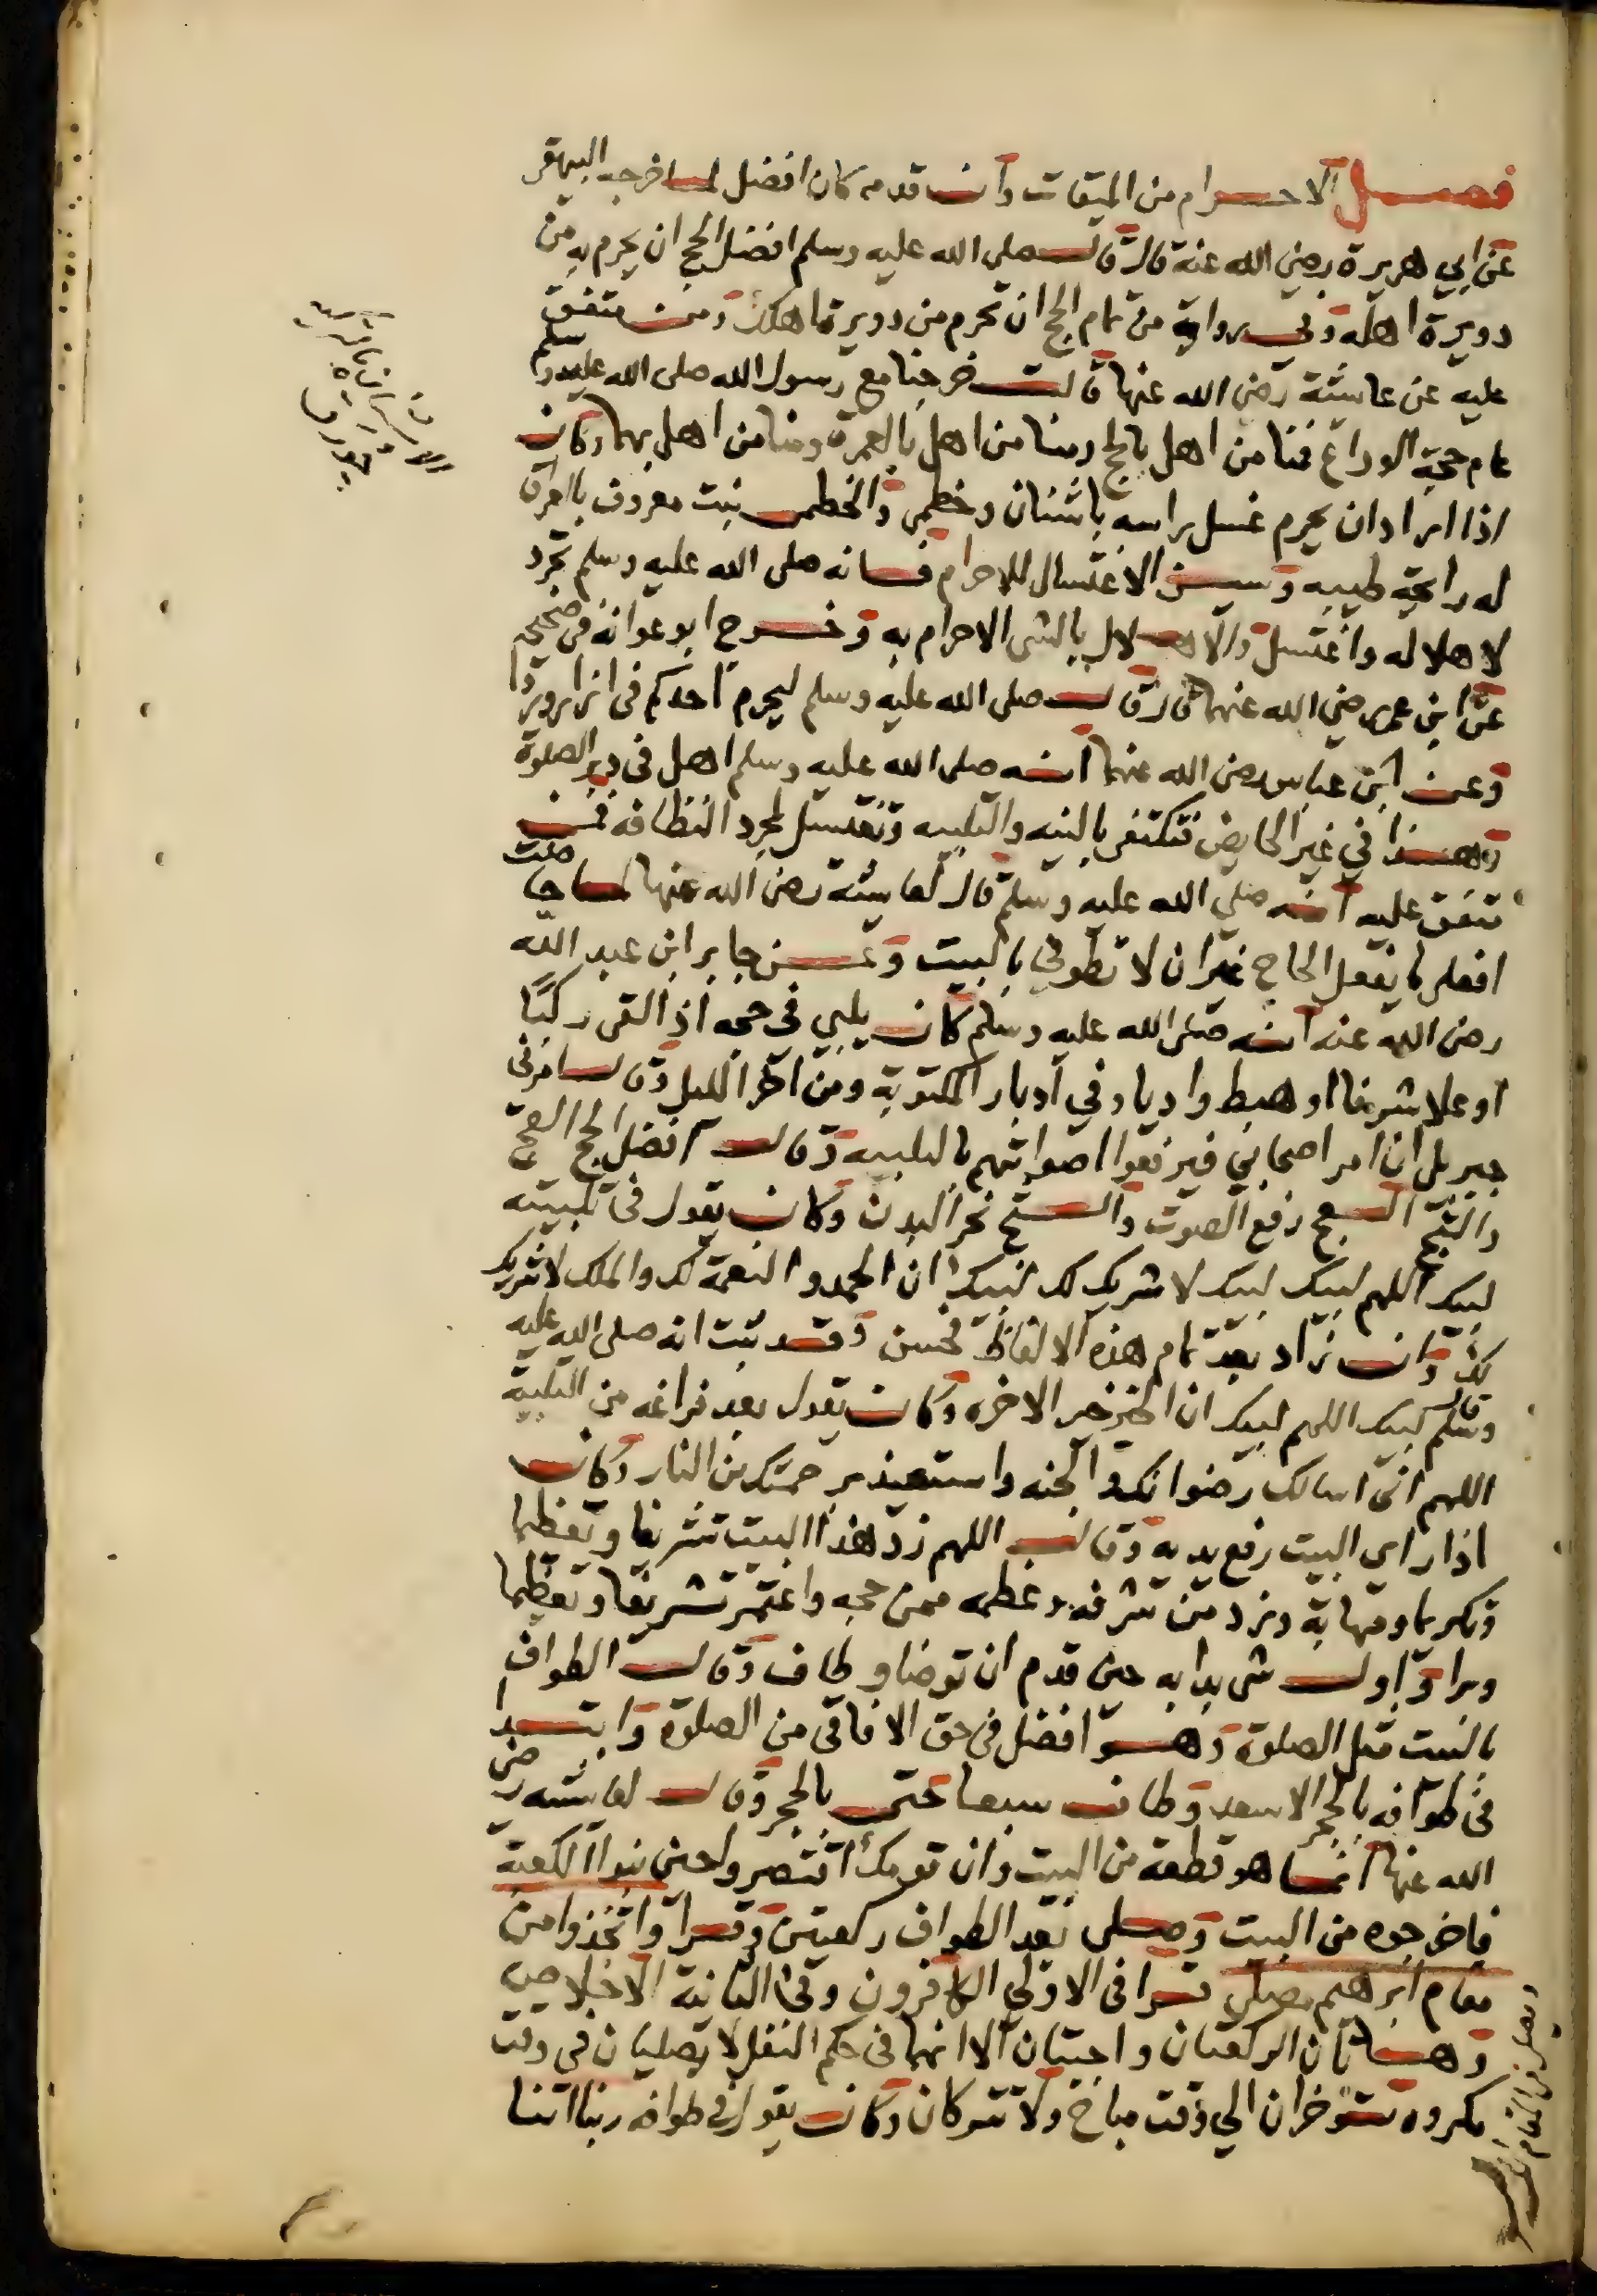 فصل الاحرام من الميقات وان قدمه كان افضل لما اخرجه البيهقي
عن ابي هريرة رضي الله عنه قال قال صلى الله عليه وسلم افضل الحج ان يحرم به من
دويرة اهله وفي رواية من تمام الحج ان تحرم من دويرة اهلك ومن متفق
عليه عن عائشة رضي الله عنها قالت خرجنا مع رسول الله صلى الله عليه وسلم
عام حجة الوداع فمنا من اهل بالحج ومنا من اهل بالعمرة ومنا من اهل بهما وكان
اذا اراد ان يحرم غسل راسه باشنان وخطمي والخطمي نبت معروف بالعراق
له رايحة طيبه وسن الاغتسال للاحرام فانه صلى الله عليه وسلم تجرد
لاهلاله واغتسل والاهلال بالشي الاحرام به وخرج ابو عوانة في صحيحه
عن ابن عمر رضي الله عنهما قال قال صلى الله عليه وسلم ليحرم احدكم في ازار وردا
وعن ابن عباس رضي الله عنهما انه صلى الله عليه وسلم اهل في دبر الصلوة
وهذا في غير الحايض فتكتفي بالنيه والتلبيه وتغتسل لمجرد النظافه فمن
متفق عليه انه صلي الله عليه وسلم قال لعايشة رضي الله عنها لما حاضت
افعلي ما يفعل الحاج غير ان لا تطوفي بالبيت وعن جابر ابن عبد الله
رضي الله عنه انه صلى الله عليه وسلم كان يلبي في حجه اذا لقى ركبًا
او علا شرفا او هبط واديا وفي ادبار المكتوبة ومن اخر الليل وقال امرني
جبريل ان امر اصحابي فيرفعوا اصواتهم بالتلبيه وقال افضل الحج العج
والثج العج رفع الصوت والثج نحر البدن وكان يقول في تلبيته
لبيك اللهم لبيك لبيك لا شريك لك لبيك ان الحمد والنعمة لك والملك لا شريك
لك وان زاد بعد تمام هذه الالفاظ فحسن وقد ثبت انه صلى الله عليه
وسلم قال لبيك اللهم لبيك ان الخير خير الاخره وكان يقول بعد فراغه من التلبية
اللهم اني اسالك رضوانك والجنه واستعيذ برحمتك من النار وكان
اذا راى البيت رفع يديه وقال اللهم زد هذا البيت تشريفا وتعظيما
وتكريما ومهابة وزد من شرفه وعظمه ممن حجه واعتمر تشريفا وتعظيما
وبرا واول شي بدا به حين قدم ان توضا وطاف وقال الطواف
بالبيت مثل الصلوة وهو افضل في حق الافاقي من الصلوة وابتدا
في طوافه بالحجر الاسود وطاف سبعا حتى بالحجر وقال لعايشه رضي
الله عنها انما هو قطعة من البيت وان قومك اقتصروا حين بنوا الكعبة
فاخرجوه من البيت وصلى بعد الطواف ركعتين وقرا واتخذوا من
مقام ابرهيم مصلى قرا في الاولي الكافرون وفي الثانية الاخلاص
وهاتان الركعتان واجبتان الا انهما في حكم النفل لا يصليان في وقت
مكروه تؤخران الي وقت مباح ولا تتركان وكان يقول في طوافه ربنا اتنا